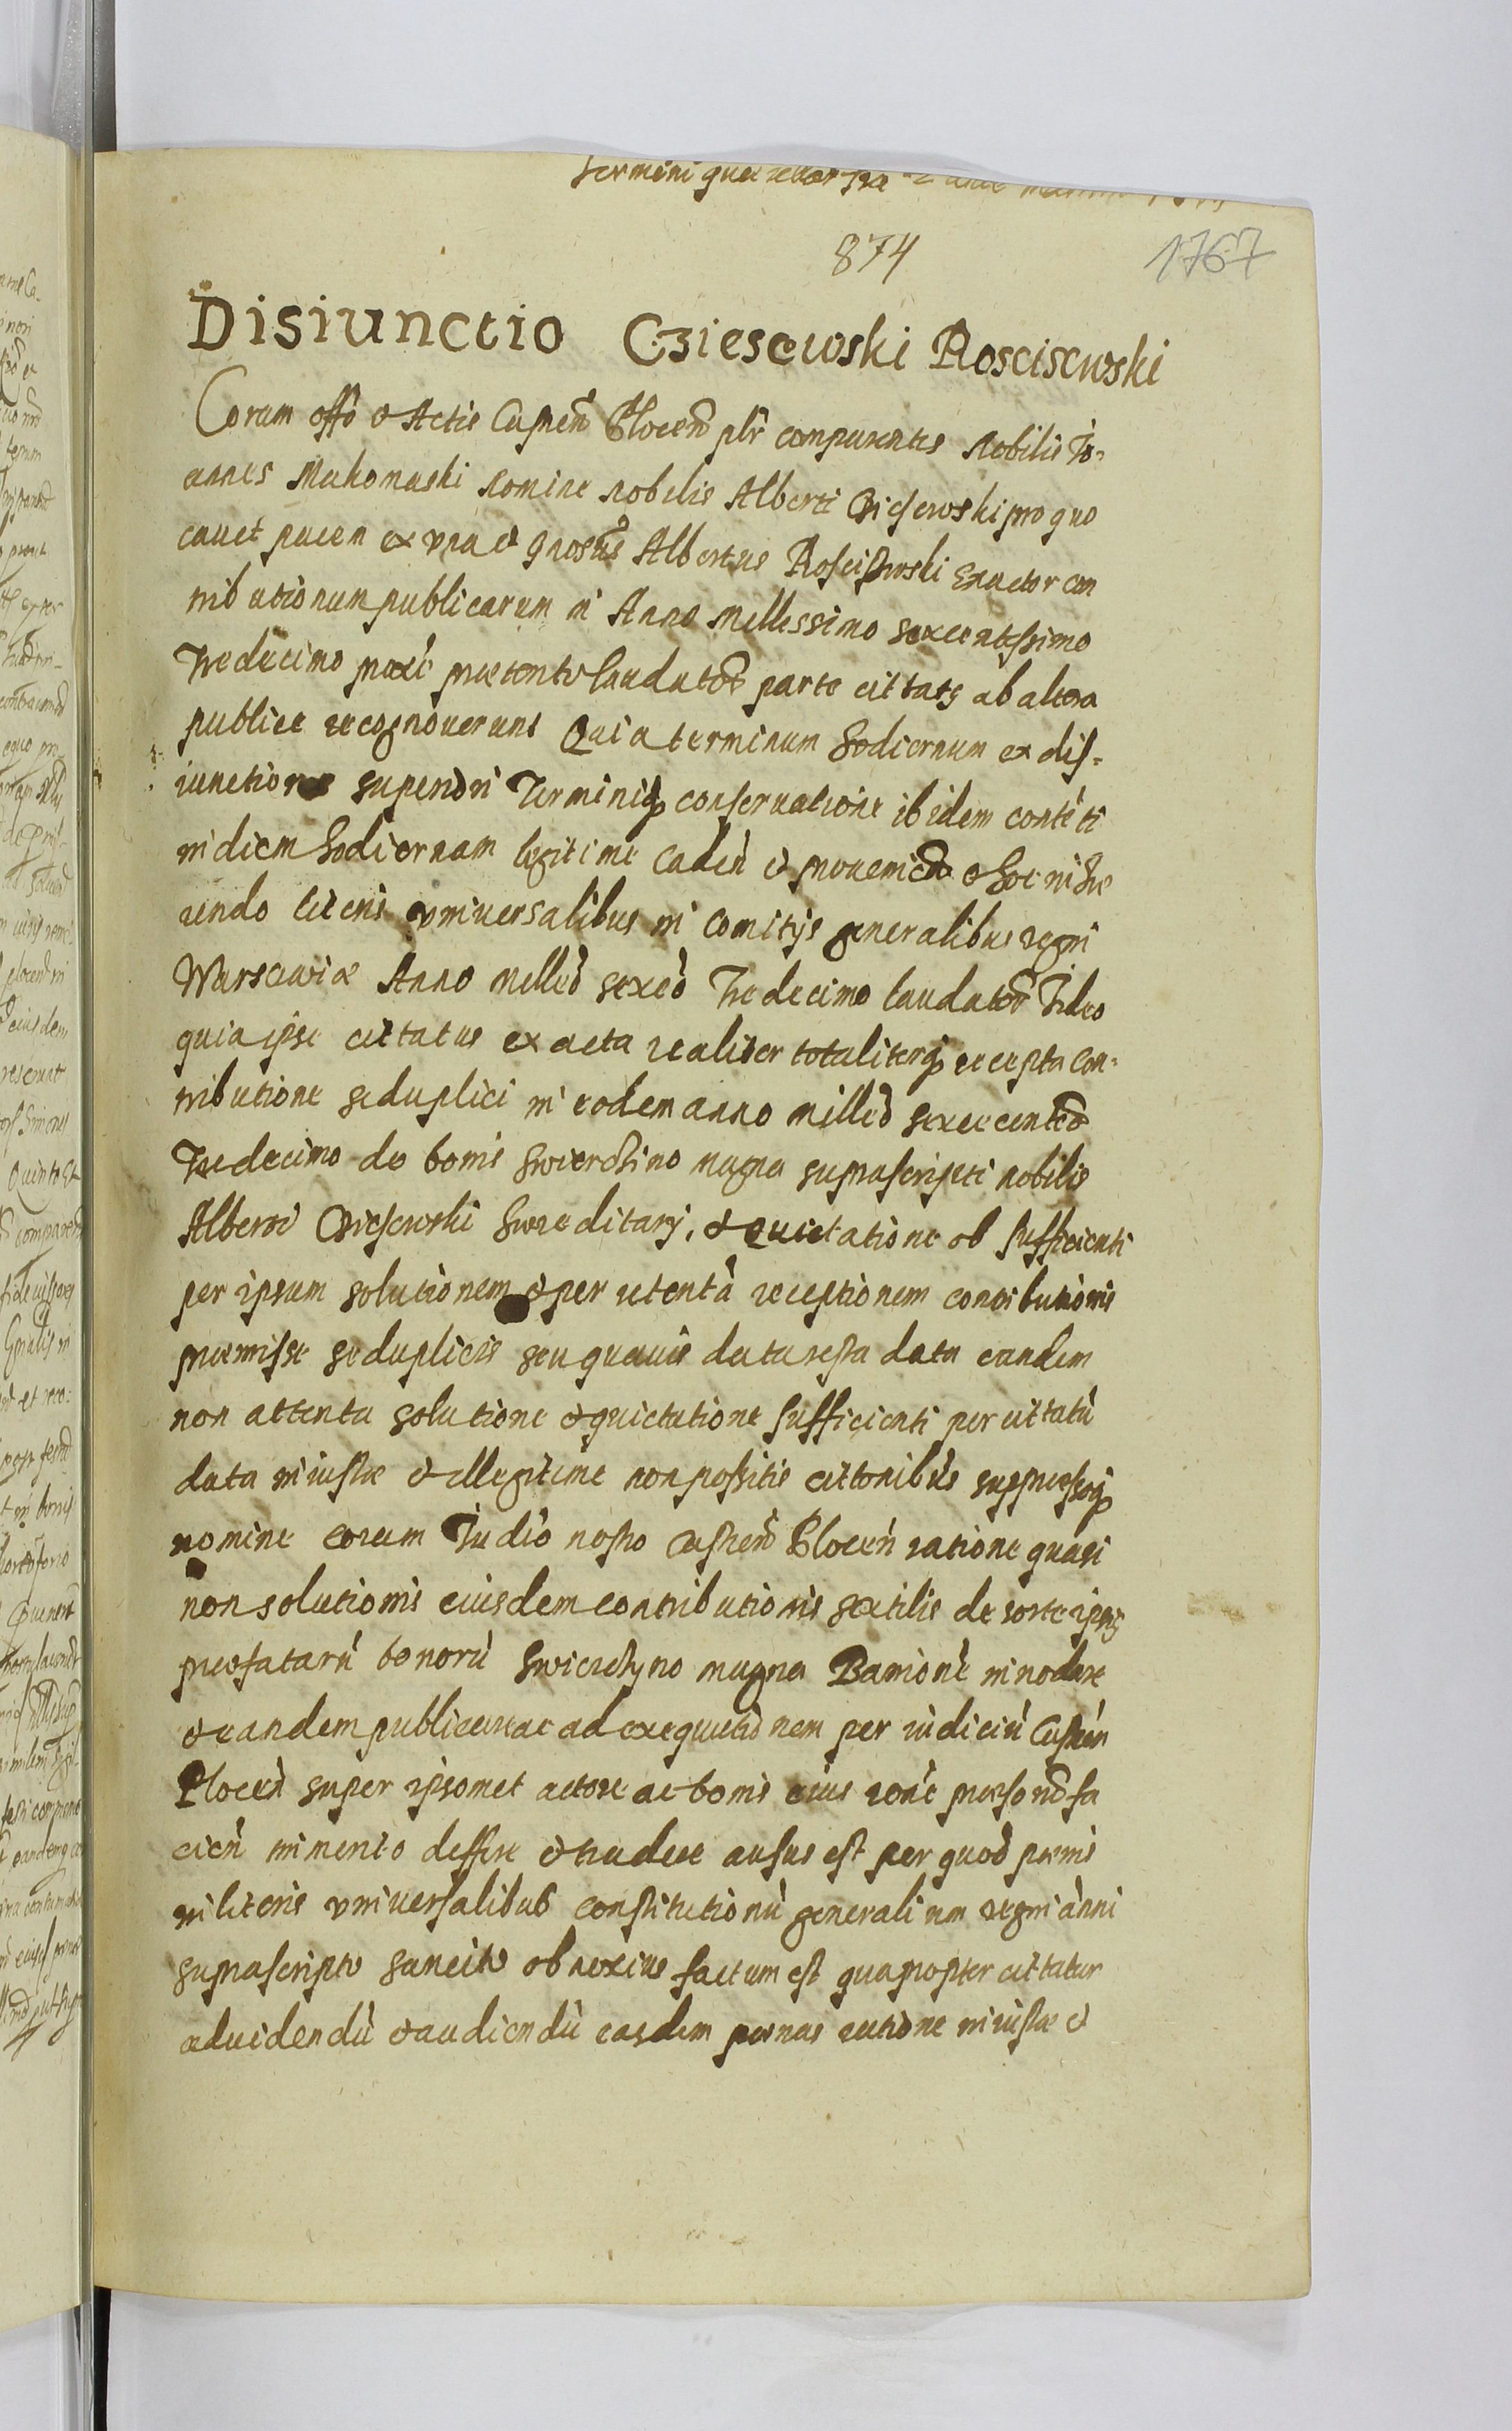 Termini
874
1767
Disiunctio Cziesewski Roscisewski
Coram offo et Actis Castren Plocen plr comparentes Nobilis Jo-
annes Makomaski nomine nobilis Alberti Cziesewski pro quo
cauet pacem ex vna et gnosus Albertus Roscisewski Exactor con
tributionum publicarum in Anno Millessimo sexcentessimo
Tredecimo laudator parte cittatq ab altera
publice recognouerunt Quia terminum hodiernum ex dis-
iunctione superiori Terminiq conseruatione ibidem conteti
in diem hodiernam legitime caden et prouenien et hoc inhe
rendo literis vniuersalibus in Comitijs generalibus regni
Warsewiæ Anno Milleo sexco Tredecimo laudator Ideo
quia ipse cittatus exacta realiter totaliterq recepta con-
tributione seduplici in eodem anno milleo sexcenteo
Tredecimo de bonis Swierchino magna suprascripti nobilis
Alberti Cziesewski hæreditarj, et quietatione ob sufficienti
per ipsum solutionem et per receptionem contributionis
præmisse seduplicis seu quauis data eandem
non attenta solutione et quietatione sufficienti per cittatu
data iniuste et illegitime non positis cittonibus suppressoq
nomine eorum Judio nostro Castren Plocen ratione quasi
non solutionis eiusdem contributionis sextilis de sorte ipsq
præfataru bonoru Swierchyno magna Banione innodare
et eandem publicare ac ad exequutionem per iudiciu Castren
Plocen super ipsomet actore ac bonis eius rone fa
cien inmerito deffere et tradere ausus est per quod pænis
in literis vniuersalibus constitutionu generalium regni anni
suprascripti sancitis obnoxius factum est quapropter cittatur
ad uidendu et audiendu easdem pænas ratione iniuste et